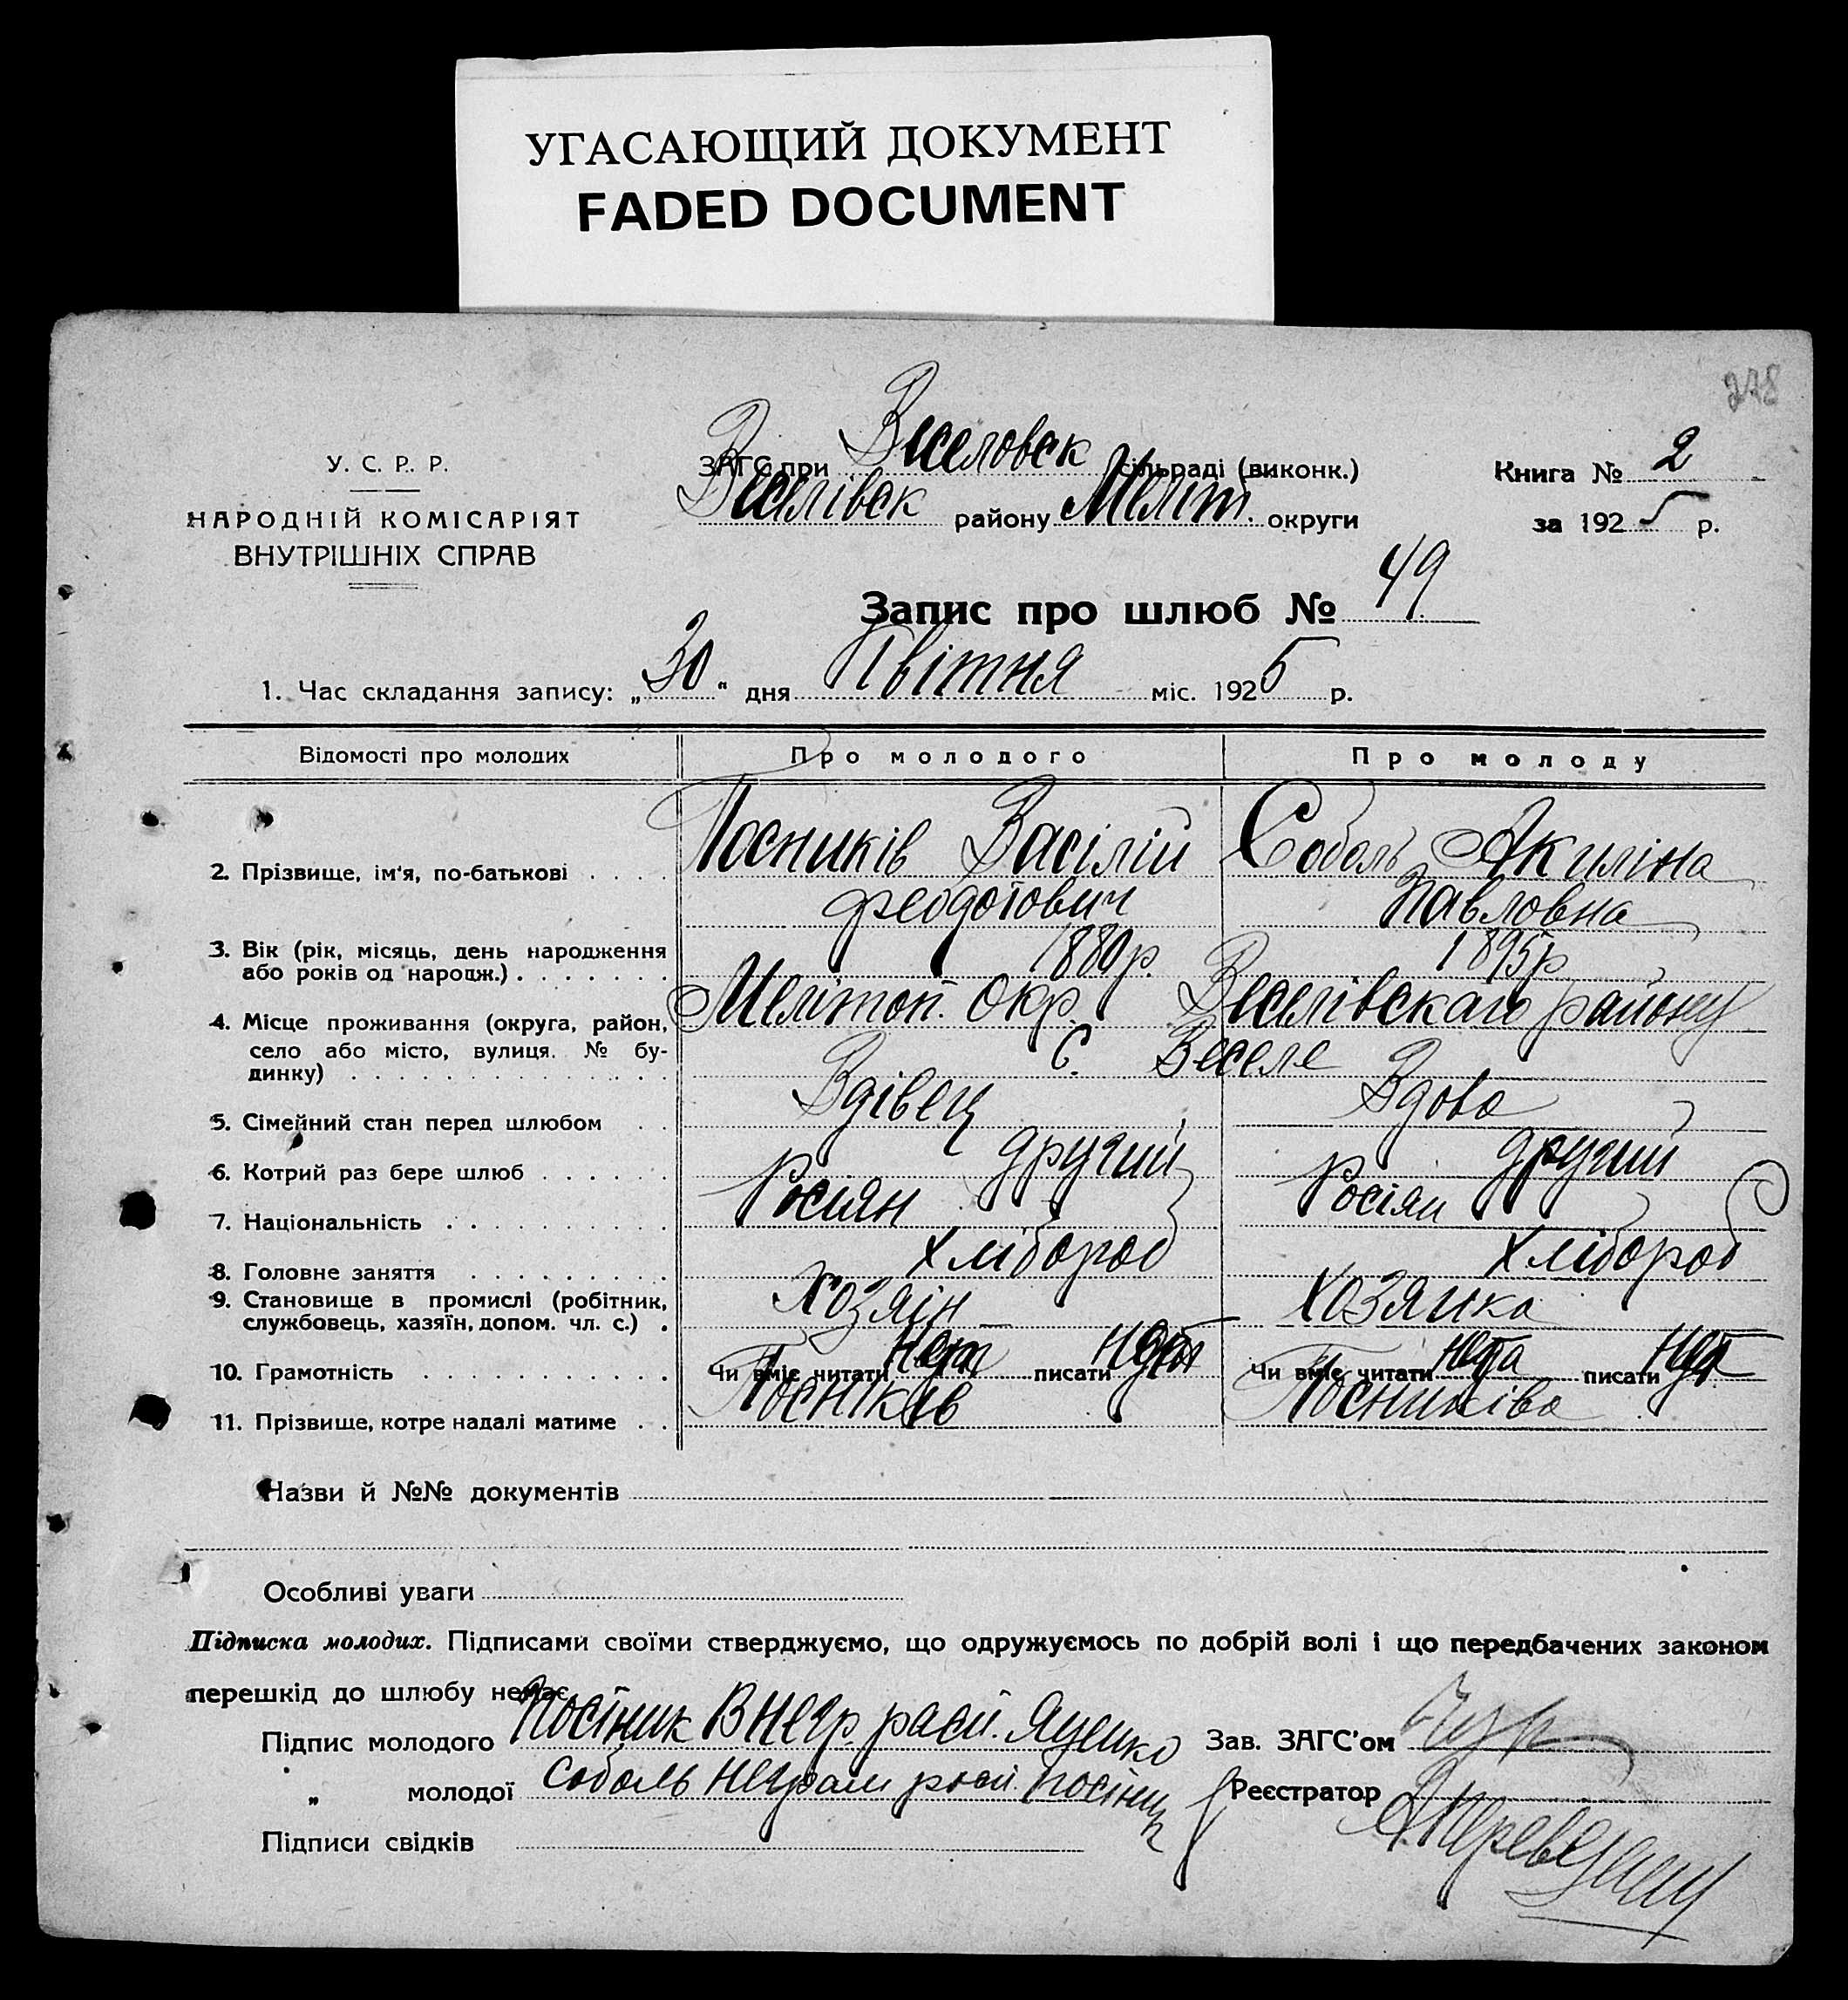 УГАСАЮЩИЙ ДОКУМЕНТ
FADED DOCUMENT
278
У. С. Р. Р.
НАРОДНІЙ КОМІСАРІЯТ
ВНУТРІШНІХ СПРАВ
ЗАГС при Веселовск сільраді (виконк.)
Веселівск району Меліт. округи
Книга № 2
за 1925 р.
Запис про шлюб № 49
1. Час складання запису: „30" дня Квітня міс. 1925 р.
Відомості про молодих Про молодого Про молоду
2. Прізвище, ім'я, по-батькові Посників Васілій Соболь Акиліна
Феодотович Павловна
3. Вік (рік, місяць, день народження
або років од народж.) 1880р. 1895р
4. Місце проживання (округа, район, Мелітоп. Окр. Веселівскаго району
село або місто, вулиця. № бу-
динку) С. Веселе
5. Сімейний стан перед шлюбом Вдівец Вдова
6. Котрий раз бере шлюб другий другий
7. Національність Росіян Росіян
8. Головне заняття Хлібороб Хлібороб
9. Становище в промислі (робітник,
службовець, хазяїн, допом. чл. с.) Хозяін Хозяика
10. Грамотність Чи вміє читати писати Чи вміє читати писати
11. Прізвище, котре надалі матиме Посніків Посниківа
Назви й №№ документів
Особливі уваги
Підписка молодих. Підписами своїми стверджуємо, що одружуємось по добрій волі і що передбачених законом
перешкід до шлюбу немає.
Підпис молодого Посіник В негр. Яценко Зав. ЗАГС'ом
„ молодої Соболь Реєстратор
Підписи свідків